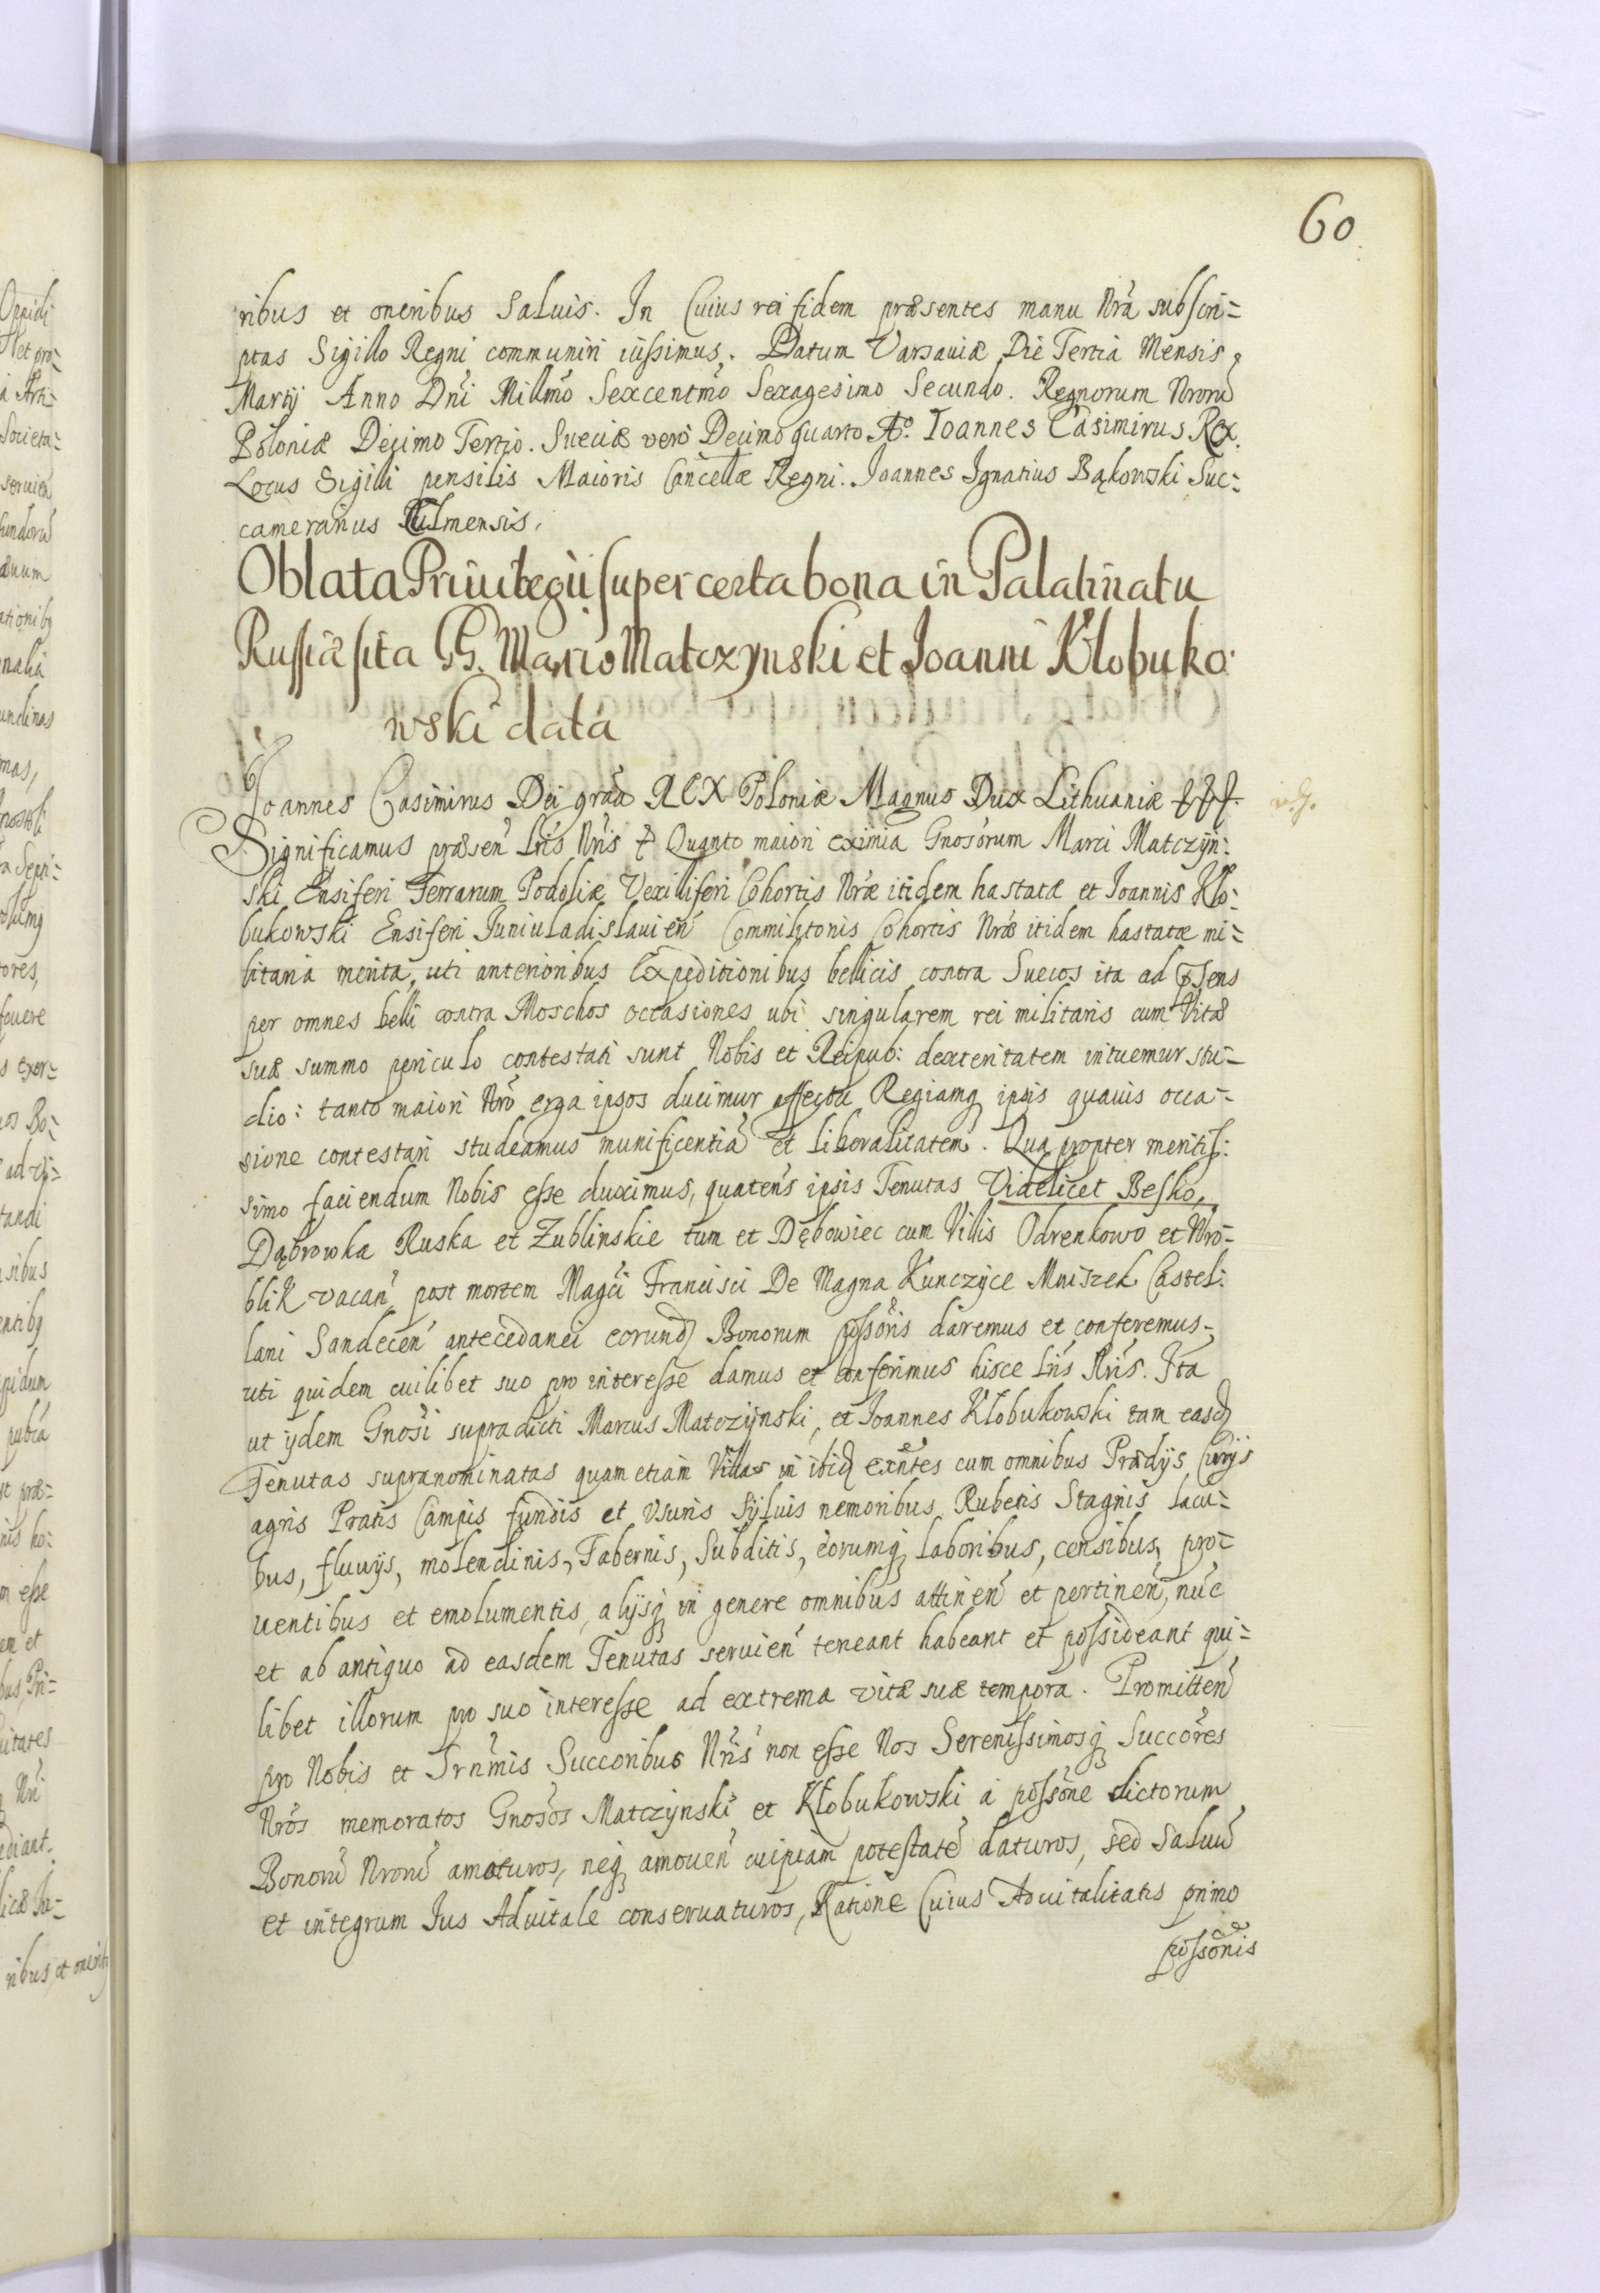 60
ribus et oneribus Saluis. In Cuius rei fidem præsentes manu Nrã subscri=
ptas Sigillo Regni communiri iussimus. Datum Varsauiæ Die Tertia Mensis
Martij Anno Dni Millmo Sexcentmo Sexagesimo Secundo. Regnorum Nrorũ
Poloniæ Decimo Tertio. Sueciæ vero Decimo quarto Aº. Ioannes Casimirus Rex.
Locus Sigilli pensilis Maioris Cancellæ Regni. Joannes Ignatius Bąkowski Suc=
camerarius Culmensis.
Oblata Priuilegii super certa bona in Palatinatu
Russiæ sita GG. Marco Matczynski et Joanni Klobuko:
wski data
Joannes Casimirus Dei grãa REX Poloniæ Magnus Dux Lithuaniæ
Significamus præsen Lris Nris Quanto maiori eximia Gnosorum Marci Matczÿn:
ski Ensiferi Terrarum Podoliæ Vexilliferi Cohortis Nræ itidem hastatæ et Ioannis Klo:
bukowski Ensiferi Juniuladislauien Commilitonis Cohortis Nræ itidem hastatæ mi=
litaria merita, uti anterioribus Expeditionibus bellicis contra Suecos ita ad psens
per omnes belli contra Moschos occasiones ubi singularem rei militaris cum Vitæ
suæ summo periculo contestati sunt Nobis et Reipub: dexteritatem intuemur stu=
dio: tanto maiori Nro erga ipsos ducimur affectu Regiamq ipsis quauis occa=
sione contestari studeamus munificentiã et liberalitatem. Qua propter meritis:
simo faciendum Nobis esse duximus, quatens ipsis Tenutas Videlicet Besko,
Dąbrowka Ruska et Zublinskie tum et Dębowiec cum Villis Odrenkowo et Wro=
blik vacan post mortem Magci Francisci De Magna Kunczÿce Mniszek Castel:
lani Sandecen antecedanei eorund Bonorum possoris daremus et conferemus,
uti quidem cuilibet suo pro interesse damus et conferimus hisce Lris Nris. Ita
ut ijdem Gnosi supradicti Marcus Matczÿnski, et Joannes Klobukowski tam easd
Tenutas supranominatas quam etiam Villas in ibid exntes cum omnibus Prædijs Curijs
agris Pratis Campis fundis et Vsuris Sÿluis nemoribus Rubetis Stagnis lacu=
bus, fluuijs, molendinis, Tabernis, Subditis, eorumq laboribus, censibus, pro=
uentibus et emolumentis, alijsq in genere omnibus attinen et pertinen, nuc
et ab antiquo ad easdem Tenutas seruien teneant habeant et possideant qui=
libet illorum pro suo interesse ad extrema vitæ suæ tempora. Promitten
pro Nobis et Srnmis Succoribus Nris non esse Nos Serenissimosq Succores
Nros memoratos Gnosos Matczÿnski et Klobukowski a possone dictorum
Bonorũ Nrorũ amoturos, neq amouen cuipiam potestatẽ daturos, sed Saluũ
et integrum Ius Aduitale conseruaturos, Ratione Cuius Aduitalitatis primo
possonis